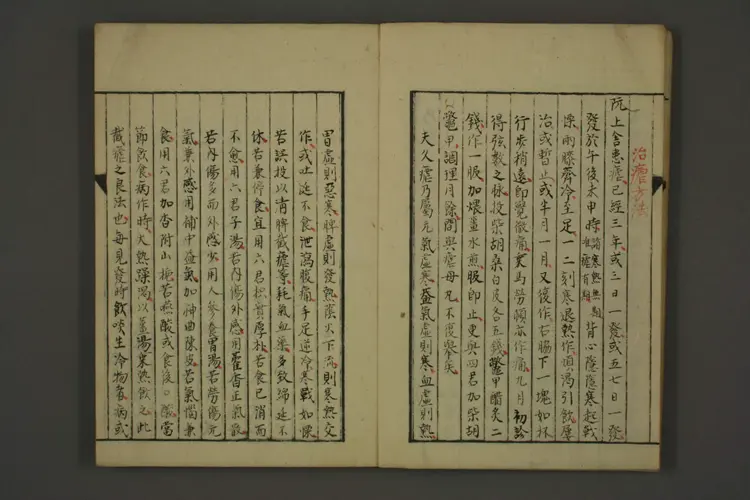 治瘧方法
阮上舍患瘧已經三年或三日一發或五七日一發
發於午後未申時諸寒熱無期唯瘧有期背心隱隱寒起戰
慄兩膝齊冷至足一二刻寒退熱作煩渴引飲屢
治或暫止或半月一月又復作右脇下一塊如杯
行步稍遠即覺微痛車馬勞頓亦作痛九月初診
得弦數之脉投柴胡桑白皮各五錢鱉甲醋炙二
錢作一服加煨薑水煎服即止更與四君加柴胡
鱉甲調理月餘間與瘧母丸不復舉矣
夫久瘧乃屬元氣虛寒蓋氣虛則寒血虛則熱
胃虛則惡寒脾虛則發熱陰火下流則寒熱交
作或吐涎不食泄瀉腹痛手足逆冷寒戰如慄
若誤投以清脾截瘧等耗氣血藥多致綿延不
休若兼停食宜用六君枳實厚朴若食已消而
不愈用六君子湯若內傷外感用藿香正氣散
若內傷多而外感少用人參養胃湯若勞傷元
氣兼外感用補中益氣加神曲陳皮若氣惱兼
食用六君加香附山梔若吞酸或食後口酸當
節飲食病作時大熱躁渴以薑湯乘熱飲之此
截瘧之良法也每見發時飲啖生冷物者病或